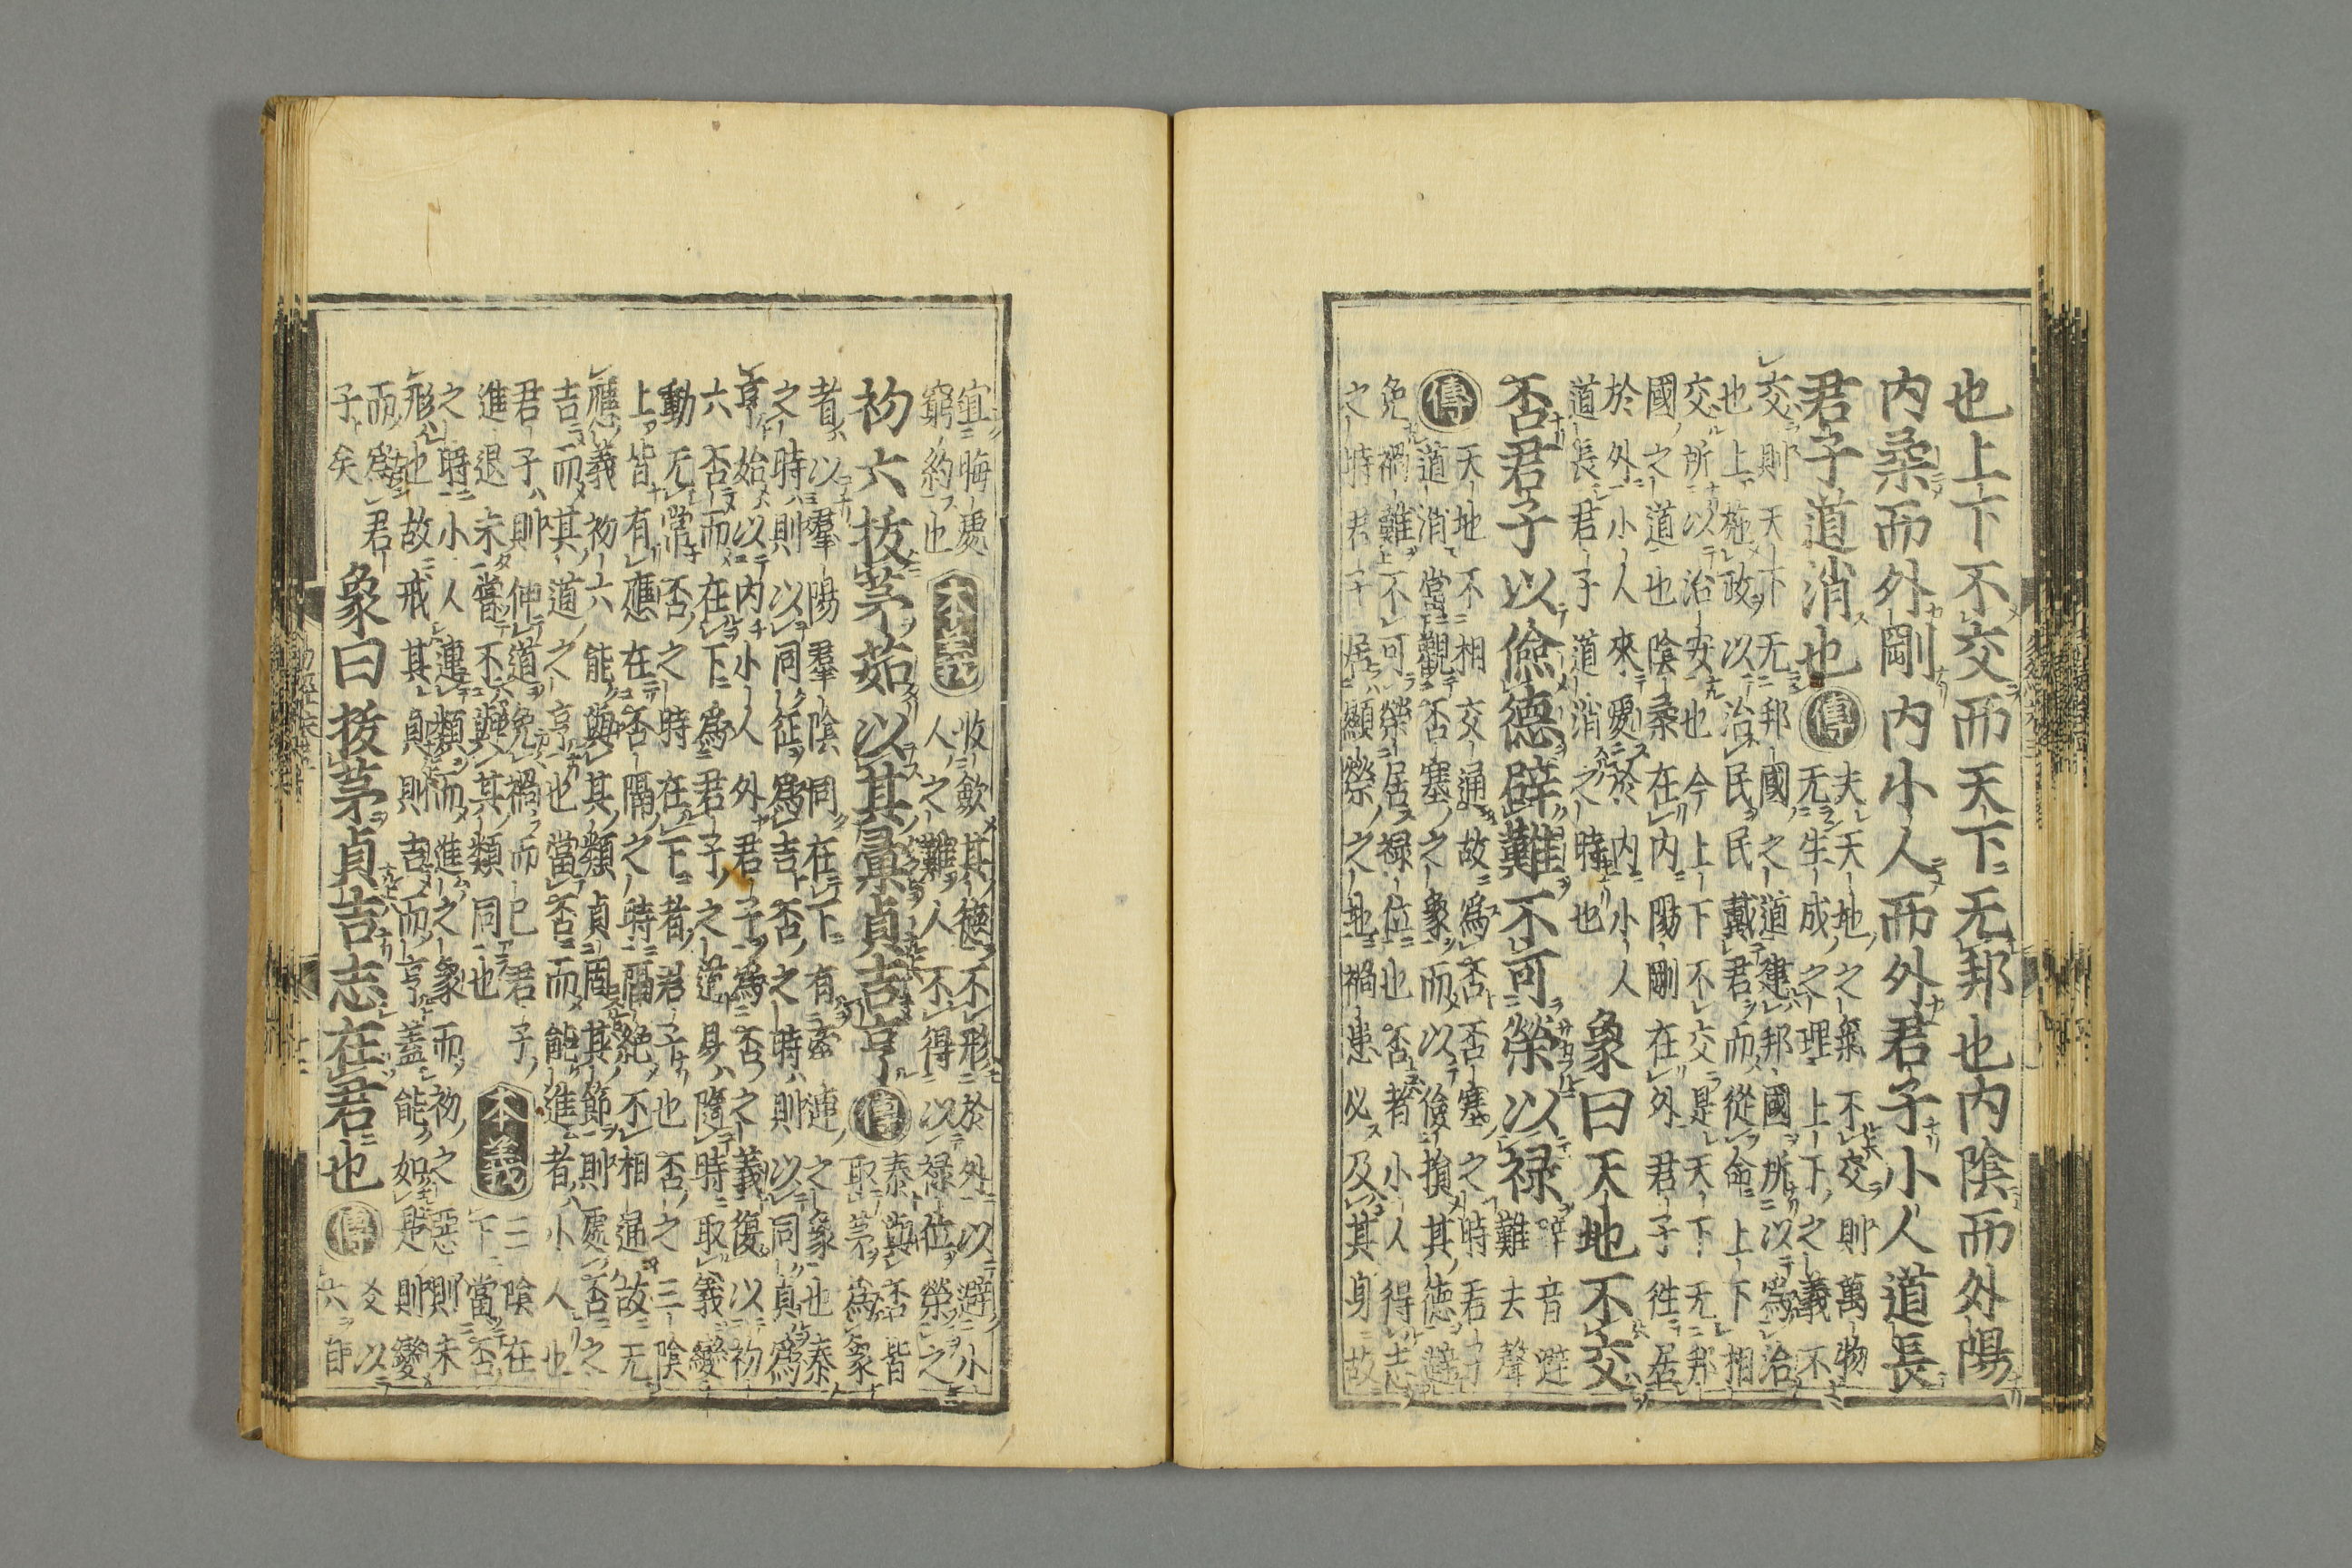 也上下不交而天下无邦也内陰而外陽
内柔而外剛内小人而外君子小人道長
君子道消也
傳
夫天地之氣不交則萬物
无生成之理上下之義不
交則天下无邦國之道建邦國所以爲治
也上施政以治民民戴君而從命上下相
交所以治安也今上下不交是天下无邦
國之道也陰柔在内陽剛在外君子往居
於外小人來處於内小人
道長君子道消之時也
象曰天地不交
否君子以儉德辟難不可榮以禄
辟音避
難去聲
傳
天地不相交通故爲否否塞之時君子
道消當觀否塞之象而以儉損其德避
免禍難不可榮居禄位也否者小人得志
之時君子居顯榮之地禍患必及其身故
宜晦處
窮約也
本義
收斂其德不形於外以避小
人之難人不得以禄位榮之
初六拔茅茹以其彙貞吉亨
傳
泰與否皆
取茅爲象
者以羣陽羣陰同在下有牽連之象也泰
之時則以同征爲吉否之時則以同貞爲
亨始以内小人外君子爲否之義復以初
六否而在下爲君子之道易隨時取義變
動无常否之時在下者君子也否之三陰
上皆有應在否隔之時隔絶不相通故无
應義初六能與其類貞固其節則處否之
吉而其道之亨也當否而能進者小人也
君子則伸道免禍而已君子
進退未嘗不與其類同也
本義
三陰在
下當否
之時小人連類而進之象而初之惡則未
形也故戒其貞則吉而亨蓋能如是則變
而爲君
子矣
象曰拔茅貞吉志在君也
傳
爻以
六自